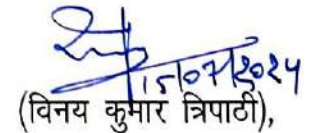 15/07/2024
(विनय कुमार त्रिपाठी),